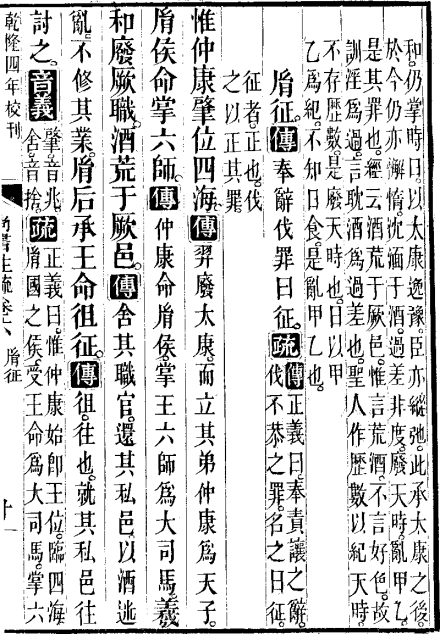 和仍掌時日以太康逸豫臣亦縱弛此承太康之後
於今仍亦懈惰沈湎于酒過差非度廢天時亂甲乙
是其罪也經云酒荒于厥邑惟言荒酒不言好色故
訓淫為過言耽酒為過差也聖人作歷數以紀天時
不存歷數是廢天時也日以甲
乙為紀不知日食是亂甲乙也
胤征。傳奉辭伐罪曰征。疏傳正義曰奉責讓之辭
伐不恭之罪名之曰征
征者正也伐
之以正其罪
惟仲康肇位四海。傳羿廢太康。而立其弟仲康為天子。
胤侯命掌六師。傳仲康命胤侯。掌王六師為大司馬。羲
和廢厥職。酒荒于厥邑。傳舍其職官。還其私邑。以酒迷
亂。不修其業。胤后承王命徂征。傳徂。往也。就其私邑往
討之。音義肇音兆。
舍音捨。疏正義曰惟仲康始即王位。臨四海
胤國之侯。受王命為大司馬。掌六
乾隆四年校刊
尚書注疏卷六 胤征